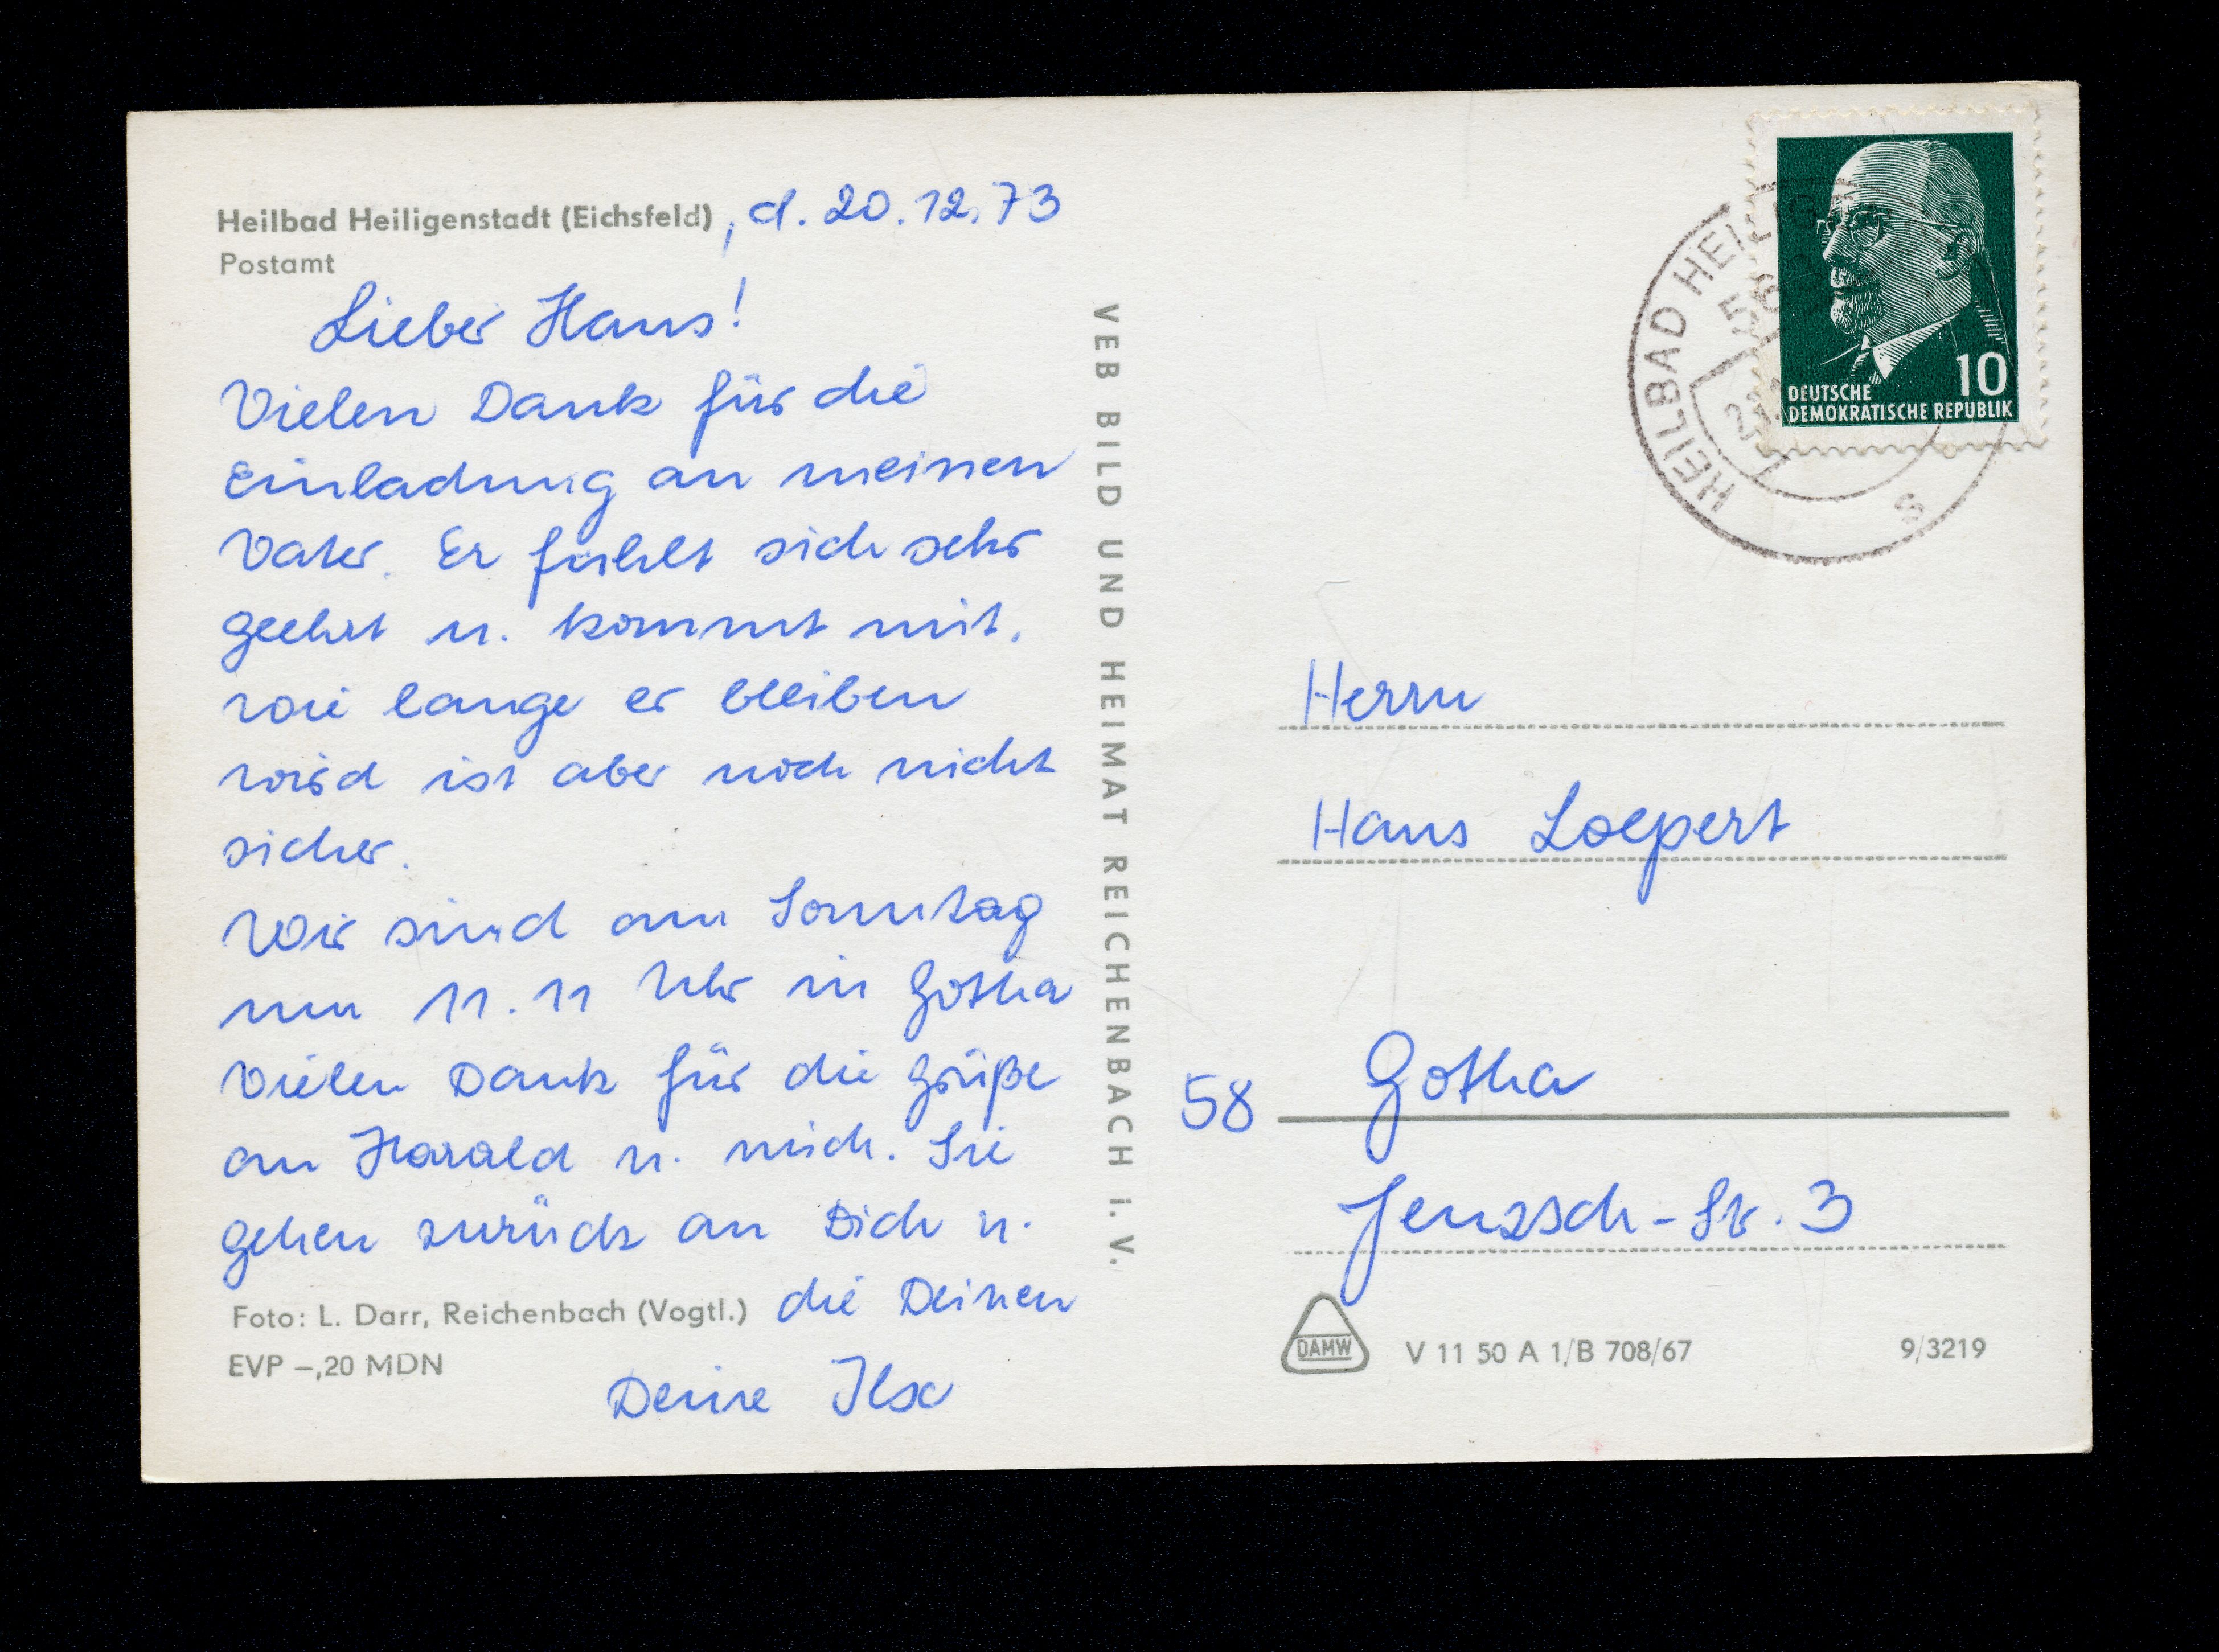 Heilbad Heiligenstadt (Eichsfeld), d. 20.12.73
Postamt
Lieber Hans!
Vielen Dank für die
Einladung an meinen
Vater. Er fühlt sich sehr
geehrt u. kommt mit.
Wie lange er bleiben
wird ist aber noch nicht
sicher.
Wir sind am Sonntag
um 11.11 Uhr in Gotha
Vielen Dank für die Grüße
an Harald u. mich. Sie
gehen zurück an Dich u.
die Deinen
Deine Ilse
Foto: L. Darr, Reichenbach (Vogtl.)
EVP –,20 MDN
VEB BILD UND HEIMAT REICHENBACH i. V.
HEILBAD HEILIG
S
10
DEUTSCHE
DEMOKRATISCHE REPUBLIK
Herrn
Hans Loepert
58 Gotha
Jenzsch-Str. 3
DAMW V 11 50 A 1/B 708/67 9/3219